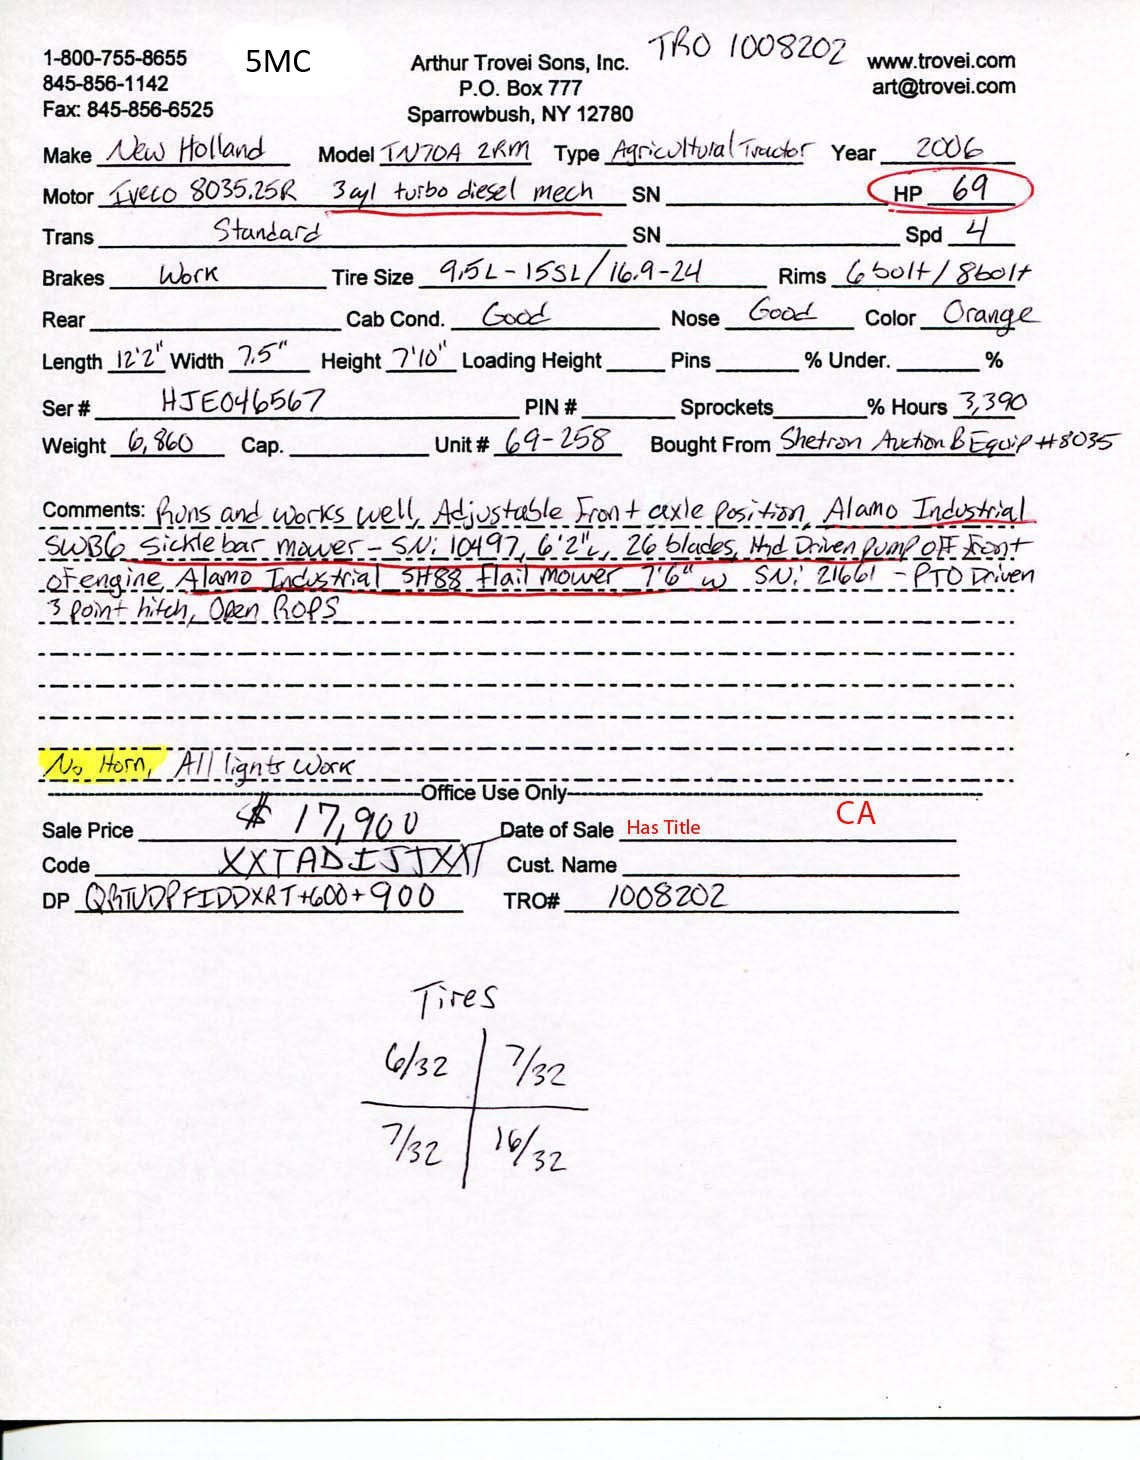 1-800-755-8655 5MC Arthur Trovei Sons, Inc. TRO 1008202 www.trovei.com
845-856-1142 P.O. Box 777 art@trovei.com
Fax: 845-856-6525 Sparrowbush, NY 12780
Make New Holland Model TN70A 2RM Type Agricultural Tractor Year 2006
Motor Iveco 8035.25R 3cyl turbo diesel mech SN HP 69
Trans Standard SN Spd 4
Brakes Work Tire Size 9.5L-15SL/16.9-24 Rims 6bolt/8bolt
Rear Cab Cond. Good Nose Good Color Orange
Length 12'2" Width 7.5" Height 7'10" Loading Height Pins % Under. %
Ser # HJE046567 PIN # Sprockets % Hours 3,390
Weight 6,860 Cap. Unit # 69-258 Bought From Shetron Auction B Equip #8035
Comments: Runs and works well, Adjustable Front axle position, Alamo Industrial
SWB6 sickle bar mower - SN: 10497, 6'2"L, 26 blades, Hyd Driven pump off front
of engine, Alamo Industrial SH88 flail mower 7'6" w SN: 21661 - PTO Driven
3 point hitch, Open ROPS
No Horn, All lights work
Office Use Only
Sale Price $ 17,900 Date of Sale Has Title CA
Code XXTADISTXXT Cust. Name
DP QRTUDPFIDDXRT+600+900 TRO# 1008202
Tires
6/32 7/32
7/32 16/32